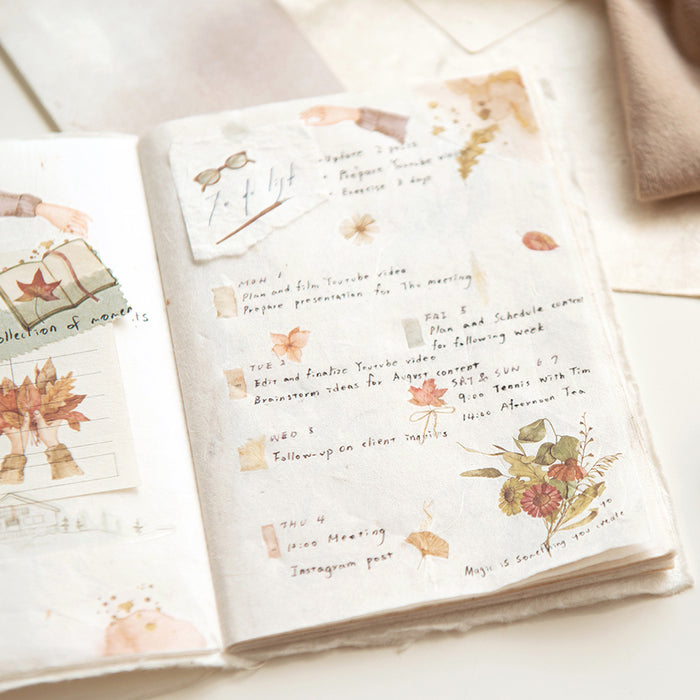 collection of moments
To do list
Prepare Youtube video
Exercise 3 days
MON 1
Plan and film Youtube video
Prepare presentation for Thu meeting
TUE 2
Edit and finalize Youtube video
Brainstorm ideas for August content
WED 3
Follow-up on client inquiries
THU 4
10:00 Meeting
Instagram post
FRI 5
Plan and Schedule content
for following week
SAT & SUN 6.7
9:00 Tennis with Tim
14:00 Afternoon Tea
Magic is something you create